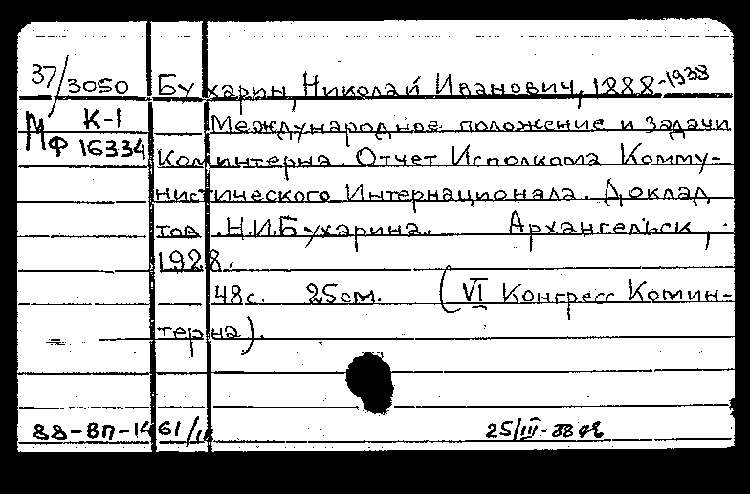 37/3050 Бухарин, Николай Иванович, 1888-1938
К-1 Международное положение и задачи
МФ 16334 Коминтерна. Отчет Исполкома Комму-
нистического Интернационала. Доклад
тов. Н.И.Бухарина. Архангельск,
1928.
48с. 25см. (VI Конгресс Комин-
терна).
88-ВП-1461/
25/III-88